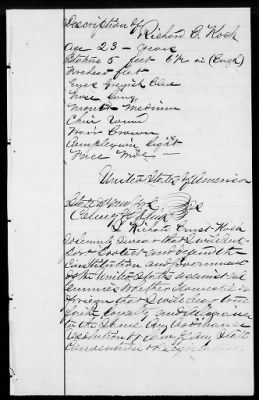 Description of
Richard C. Koch
Age 23 — years
Stature 5 feet 6½ in (Engl)
Forehead flat
Eyes Greyish Blue
Nose Long
Mouth Medium
Chin round
Hair Brown
Complexion Light
Face
United States of America
State of New York
County of
I Richard Ernst Koch
Solemnly swear that I will support
protect and defend the
Constitution and government
of the United States against all
enemies whether domestic or
foreign that I will bear true
faith, loyalty and allegiance
to the same any ordinance
resolution or law of any State
Convention or